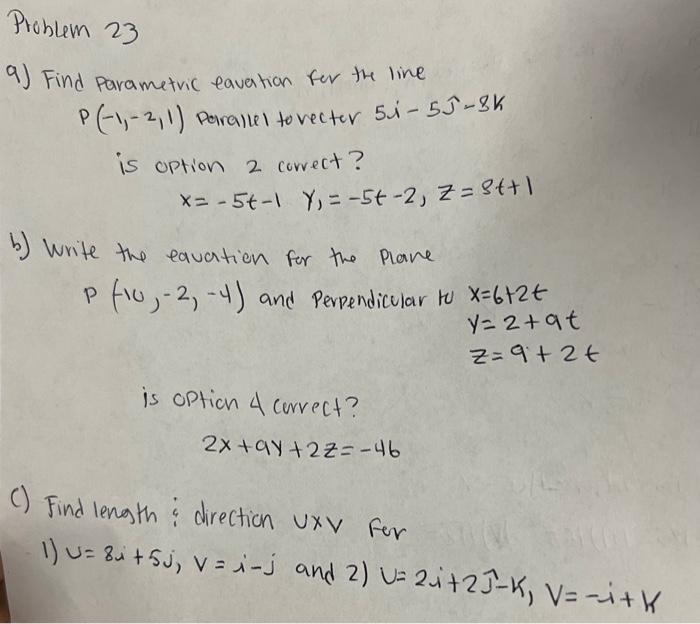 Problem 23
a) Find parametric equation for the line
P(-1,-2,1) parallel to vector 5i - 5ĵ - 8k
is option 2 correct?
x = -5t-1 y, = -5t-2, z = 8t+1
b) Write the equation for the plane
P (-10,-2,-4) and perpendicular to x=6+2t
y = 2+9t
z = 9+2t
is option 4 correct?
2x+9y+2z = -46
c) Find length & direction UxV for
1) U= 8i+5j, V = i-j and 2) U= 2i+2ĵ-k, V= -i+k